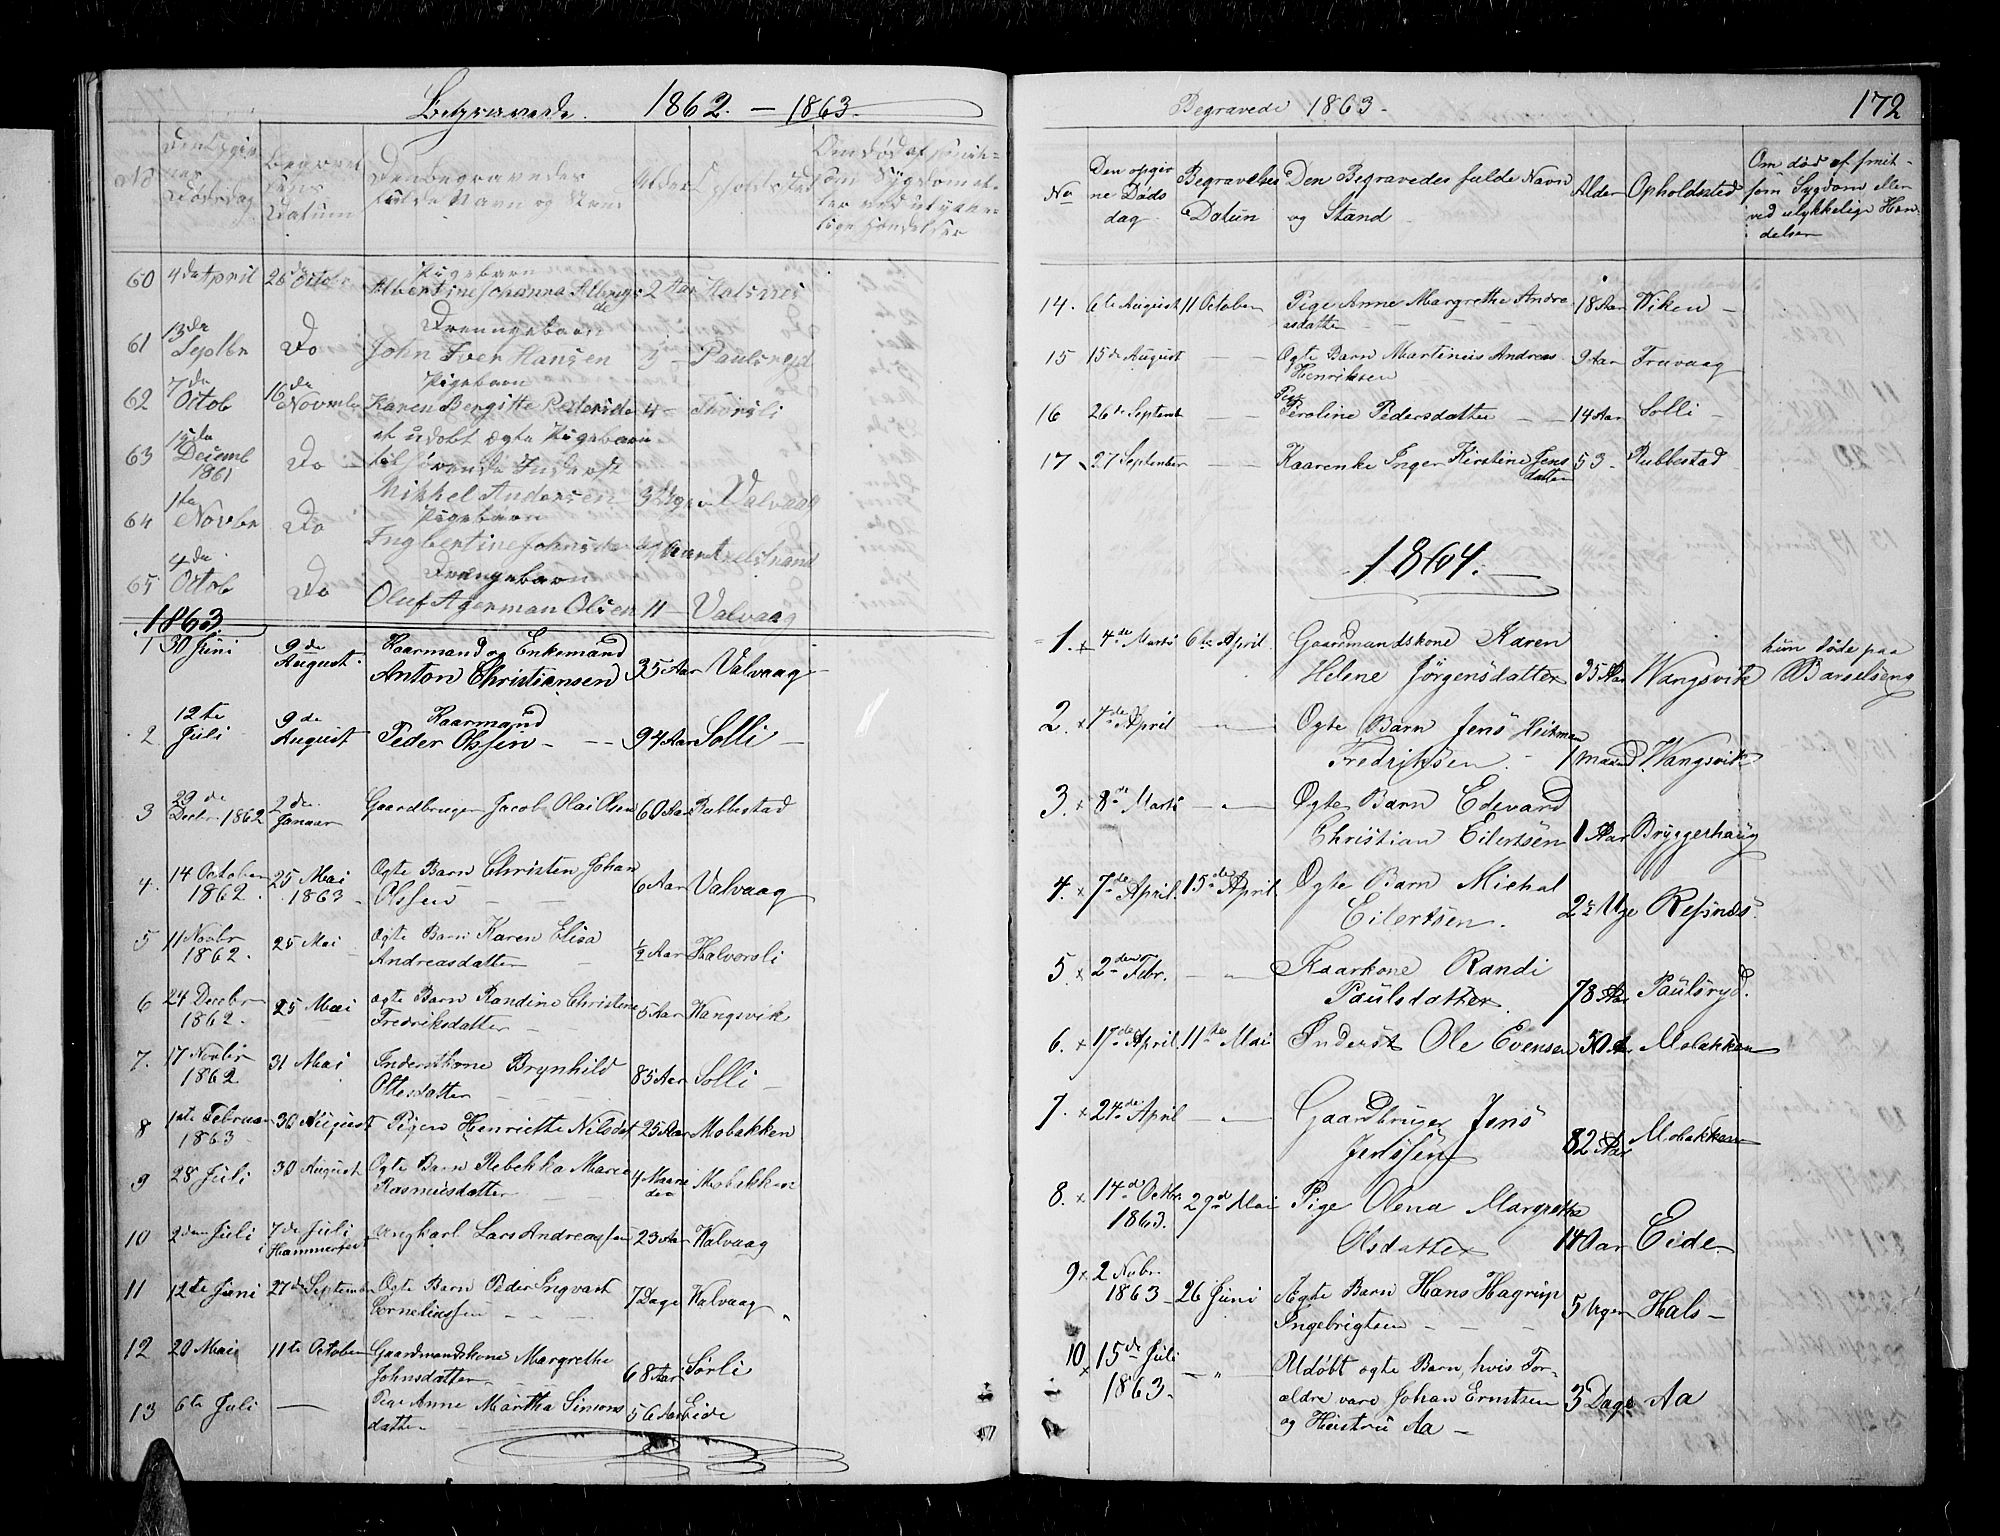 Begravede. 1862. – 1863
No
Den Opgivne Dødsdag
Begravelsens Datum
Den begravedes fulde Navn og Stand
Alder
Opholdsted
Om død af smitsom Sygdom eller ved ulykkelige Hændelser
60 4de April 26de Octobr Pigebarn
Albertine Johanna 2 Aar Kalsnes
61 13de Septbr Do Drengebarn
John Iver Hansen ½ – Paulsryd
62 7de Octob 16de Novmb Pigebarn
Karen Bergitte Pedersda 4 – Thorsli
63 Decemb 1861 Do et udøbt ægte Pigebarn
til Inderst
Mikkel Andersen 3 Uger Valvaag
64 1ste Novbr Do Pigebarn
Ingbertine Johnsda
65 4de Octob Do Drengebarn
Oluf Agerman Olsen 11 – Valvaag
1863
1 30 Juni 9de August Kaarmand og Enkemand
Anton Christiansen 35 Aar Valvaag
2 12te Juli 9de August Kaarmand
Peder Olssen – – – 94 Aar Solli –
3 29de Decbr 1862 2de Januar Gaardbruger Jacob Olai Olsen 60 Aar Rubbestad
4. 14 October 1862. 25 Mai 1863 – Ogte Barn Christen Johan
Olssen – – 6 Aar Valvaag
5 11 Novbr 1862. 25 Mai – Ogte Barn Karen Elisa
Andreasdatter – – ½ Aar Halvorsli
6 24 Decebr 1862. 25 Mai ogte Barn Randine Christene
Fredriksdatter – 5 Aar Vangsvik
7. 17 Novbr 1862. 31 Mai Inderstkone Brynhild
Ottesdatter – – – 85 Aar Solli –
8 1ste Februar 1863 30 August Pigen Henriette Nilsdat 25 Aar Mobakken
9 28 Juli 30 August Ogte Barn Rebekka Marie
Rasmusdatter – – 4 Maaneder Mobekken
10 2den Juli 7de Juli i Hammerfest ungkarl Lars Andreassen 23 Aar Valvaag
11 12te Juni 27de September Ogte Barn Peder Ingvart
Corneliussen – – – 7 Dage Valvaag
12 20 Mai 11te October Gaardmandskone Margrethe
Johnsdatter – – 68 Aar Sørli
13 6te Juli — Pige Anne Martha Simons
datter – 56 Aar Eide
Begravede 1863 – 172
No
Den opgivne Døds dag
Begravelses Datun
Den Begravedes fulde Navn og Stand
Alder
Opholdsted
Om død af smitsom Sygdom eller ved ulykkelige Hændelser
14. 6te August 11 October Pige Anne Margrethe Andre
asdatter – – – 18 Aar Viken –
15 15de August – – Ogte Barn Martinus Andreas
Henriksen 9 Aar Truvaag
16 26de Septemb – – Pige
Peroline Pedersdatter – – 14 Aar Solli –
17 27 September – – Kaarenke Inger Kirstine Jens
datter 53 – Rubbestad
1864.
1. x 4de Marts 6te April. Gaardmandskone Karen
Helene Jörgensdatter 35 Aar Wangsvik hun døde paa Barselseng
2. x 4de April – „ – Ogte Barn Jens Heitman
Fredriksen. – 1 maaned Wangsvik
3. x 8de Marts – „ – Ogte Barn Edevard
Christian Eilertsen 1 Aar Bryggerhaug
4. x 7de April. 15de April. Ogte Barn Michal
Eilertsen. 2 Uge Refsnes.
5. x 2den Febr. – „ – Kaarkone Randi
Paulsdatter 78 Aar Paulsryd.
6. x 17de April. 11te Mai Inderst Ole Evensen 50 Aar Mobakken
7. x 24de April – „ – Gaardbruger Jens
Jenssen 82 Aar Mobakken
8. x 14de Octbr. 1863. 29de Mai Pige Olena Margretha
Olsdatter 14 Aar Eide –
9 x 2 Nobr. 1863 – 26 Juni Ægte Barn Hans Hagrup
Ingebrigtsen – – – 5 Uger Hals –
10 x 15de Juli 1863. – „ – Udøbt ogte Barn, hvis For-
ældre vare Johan Erntsen
og Hustru Aa – 3 Dage Aa